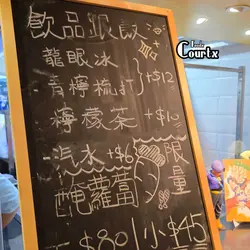 飲品跟飯
龍眼冰
青檸梳打 }+$12
檸檬茶 +$10
汽水 +$6
醃蘿蔔 限量
$80/小$45
Courtx